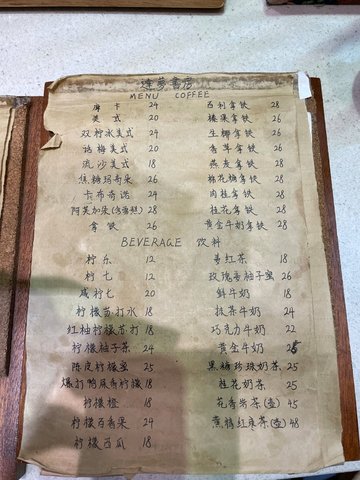 MENU COFFEE
摩卡 24 拿铁 28
美式 20 榛果拿铁 28
双柠冰美式 24 生椰拿铁 28
话梅美式 20 香草拿铁 26
流沙美式 18 燕麦拿铁 28
焦糖玛奇朵 26 棉花糖拿铁 28
卡布奇诺 24 肉桂拿铁 28
阿芙加朵 28 桂花拿铁 28
拿铁 26 黄金牛奶拿铁 28
BEVERAGE 饮料
柠乐 12 姜红茶 18
柠七 12 玫瑰姜柚子蜜 26
咸柠七 20 鲜牛奶 18
柠檬苏打水 18 抹茶牛奶 24
红柚柠檬苏打 18 巧克力牛奶 22
柠檬柚子茶 24 黄金牛奶 25
陈皮柠檬蜜 25 黑糖珍珠奶茶 25
爆打鸭屎香柠檬 18 桂花奶茶 25
柠檬橙 18 花香果茶(壶) 45
柠檬百香果 24 红枣茶(壶) 48
柠檬西瓜 18